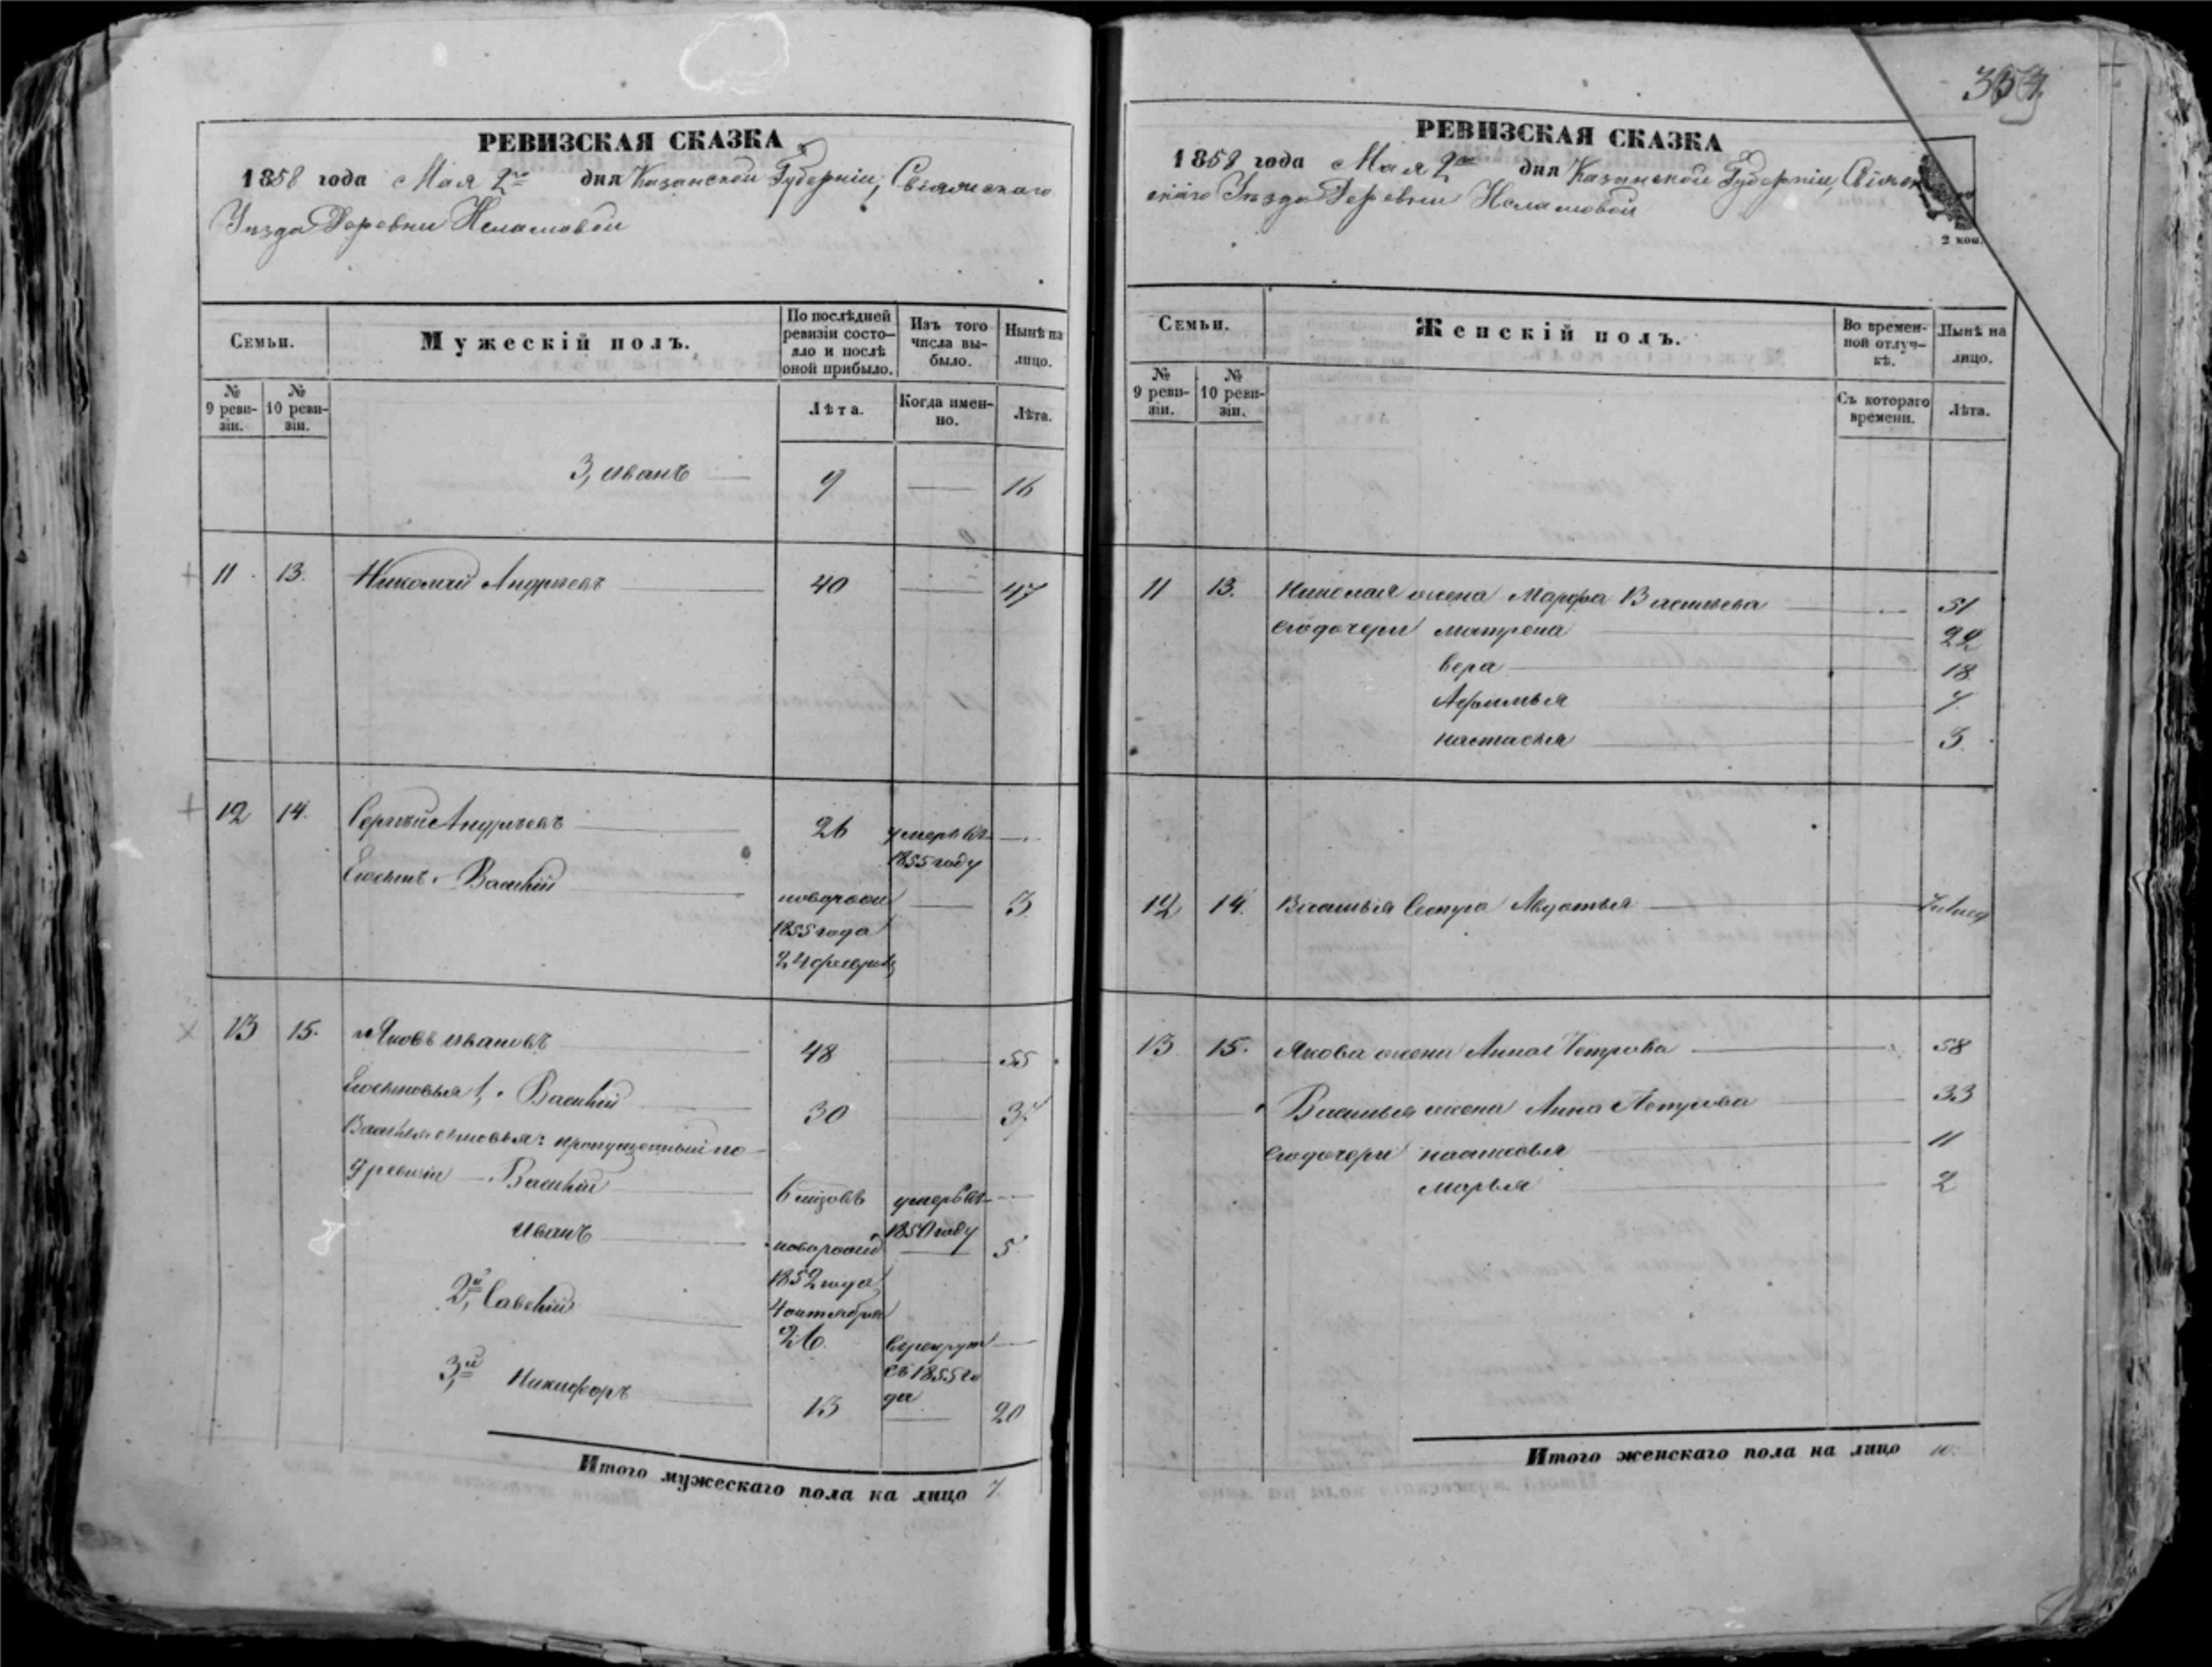 РЕВИЗСКАЯ СКАЗКА
1858 года Мая 2го дня Казанской Губерніи, Свіяжскаго
Уѣзда Деревни
Семьи.
Мужескій полъ.
По послѣдней ревизіи состояло и послѣ оной прибыло.
Изъ того числа выбыло.
Нынѣ на лицо.
№ 9 ревизіи.
№ 10 ревизіи.
Лѣта.
Когда именно.
Лѣта.
3, иванъ 9 16
11 13. Николай Андреевъ 40 47
12 14. Сергей Андреевъ 26 умеръ въ
1855 году
Его сынъ Василій новорож 3
1855 года
24 февраля
13 15. Яковъ ивановъ 48 55
Его сыновья 1, Василій 30 37
Василья сыновья: пропущенный по
9 ревизіи Василій умеръ въ
1850 году
иванъ новорож 5
1852 года
2й, Савелій 26 в рекрут
съ 1855 го
да
3й Никифоръ 13 20
Итого мужескаго пола на лицо 7
354
РЕВИЗСКАЯ СКАЗКА
1858 года Мая 2го дня Казанской Губерніи, Свіяж
скаго Уѣзда Деревни
2 коп.
Семьи.
Женскій полъ.
Во временной отлучкѣ.
Нынѣ на лицо.
№ 9 ревизіи.
№ 10 ревизіи.
Съ котораго времени.
Лѣта.
11 13. Николая жена Марфа Васильева 51
его дочери матрена 22
вера 18
Афимья 7
настасья 3.
12 14. Василья Сестра Авдотья
13 15. Якова жена Анна Петрова 58
Василья жена Анна Петрова 33
его дочери настасья 11
марья 2
Итого женскаго пола на лицо 10.